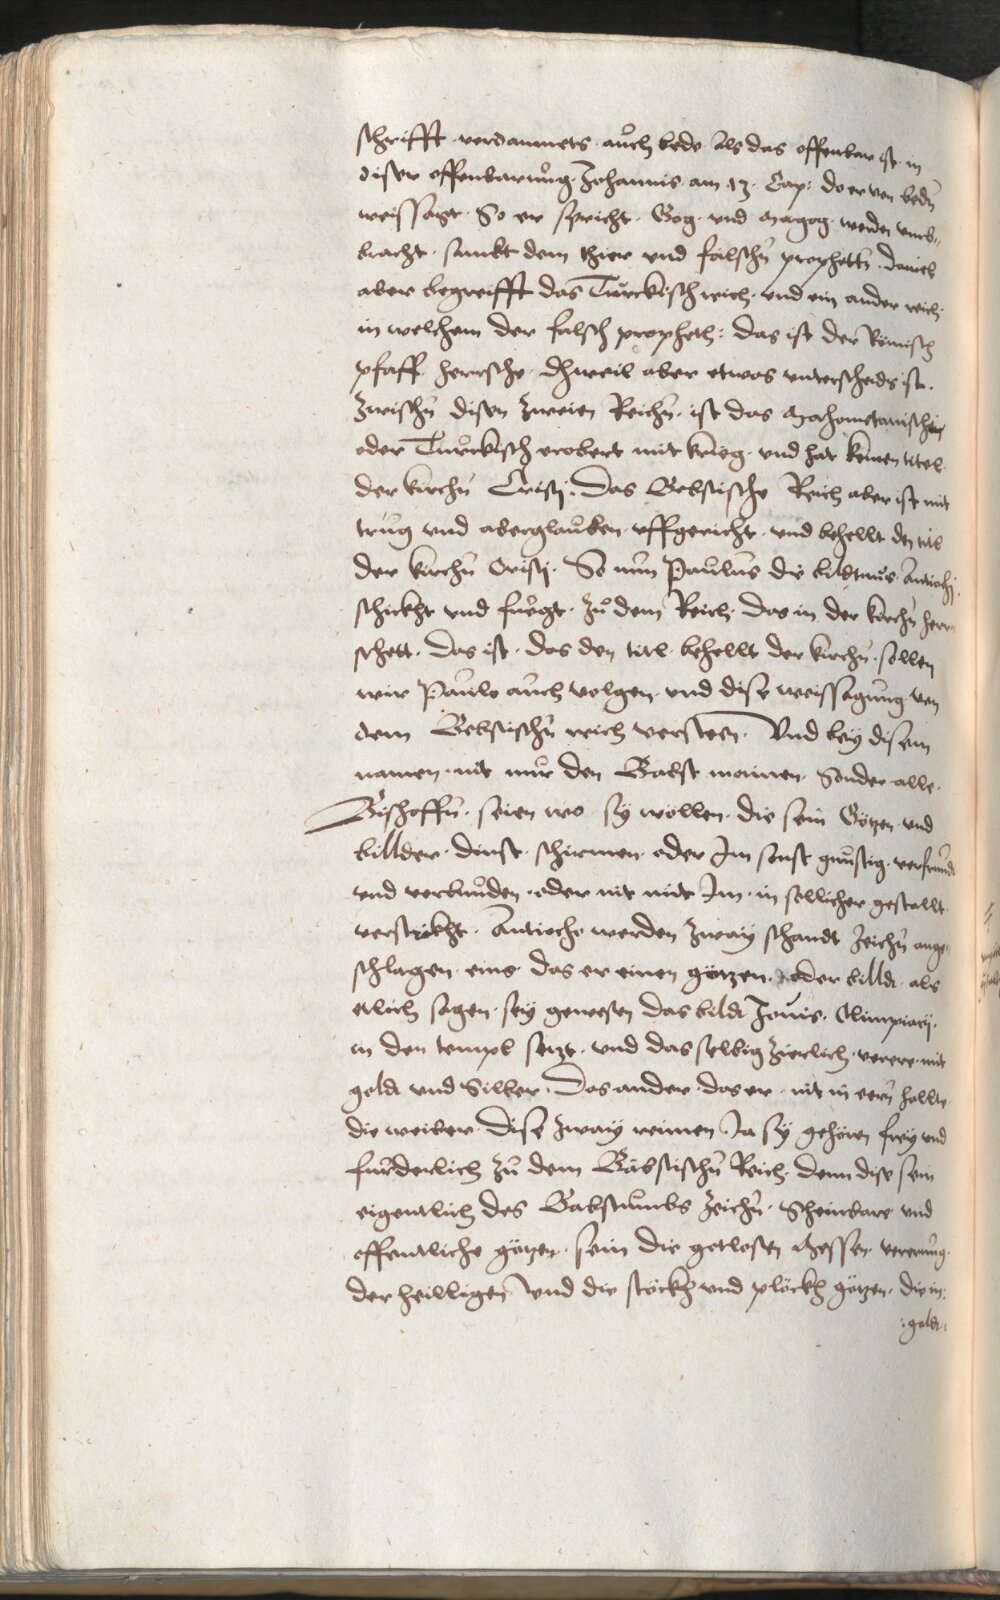 schrifft verdammets auch bede Als das offenbar ist in
diser offenbarung Johannis am 13. Cap: do er von bedn
weissagt. So er spricht. Gog. und Magog werden umb¬
bracht. sambt dem thier und falschn prophetn. Daniel
aber begreifft das Turckisch reich. und ein ander reich
in welchem der falsch propheth: das ist der Römisch
pfaff. herrsche. Dhweil aber etwas unterscheds ist.
Zwischn disen zweien Reichn. ist das Mahometanisch
oder Turckisch erobert mit krieg. und hat keinen titel
der kirchn Cristj. Das Bebstische Reich aber ist mit
trug und aberglauben uffgericht. und behellt den titl
der kirchn Cristj. So nun Paulus die bildtnus Antiochj
schickht und fuegt. zu dem Reich. das in der kirchn herr¬
schett. Das ist. das den titl. behellt der kirchn. sollen
wir Paulo auch volgen. und dise weissagung von
dem Bebstischn reich versteen. Und bey disem
namen. nit nur den Babst mainen. Sonder alle.
Bischoffn. seien wo sy wöllen. die sein Götzen und
billder. dinst. schirmen. oder Im sonst gunstig. verfrundt
und verbunden. oder nit mit Im. in sollicher gestallt.
verstrikht. Antiocho werden zway schandt Zeichn ange¬
schlagen. eins das er einen götzen. oder billdt. als
etlich sagen. sey gewesen das bildt Jovis. Olimpiacij.
in den templ setzt. und das selbig zierlich. verere. mit
goldt und Silber. Das ander. das er. nit in eern hallte
die weiber. Dise zway reimen Ja sy gehörn frey und
furderlich zu dem Bäbstischn Reich. denn dise sein
eigentlich des Babstumbs Zeichn. Scheinbare und
offentliche götzen. sein die gotlosen Messen. vererung.
der heilligen und die stöckh und plöckh götzen. die in
:goldt: